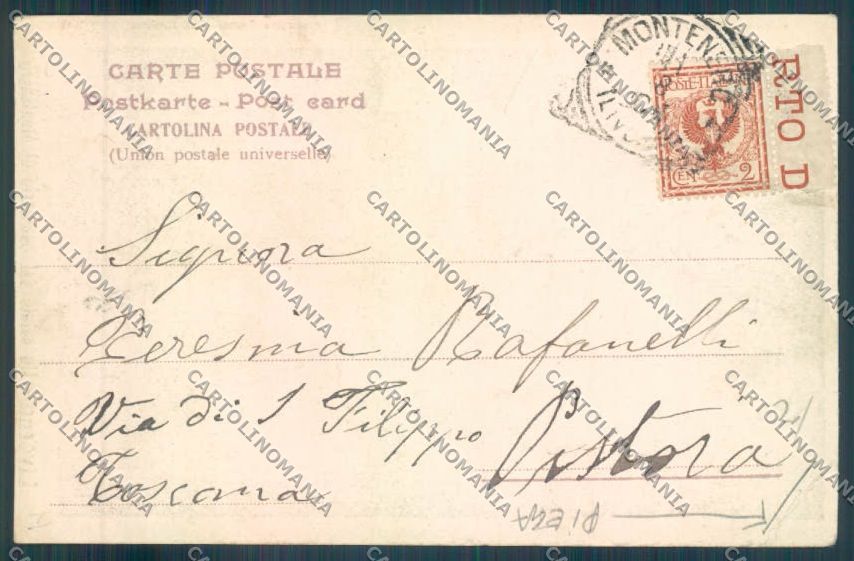 CARTE POSTALE
Postkarte - Post card
CARTOLINA POSTALE
(Union postale universelle)
MONTENERO
POSTE ITALIANE
CEN. 2
RTO D
Signora
Teresina Rafanelli
Via di S Filippo Pistoia
Toscana
PIEGA
CARTOLINOMANIA